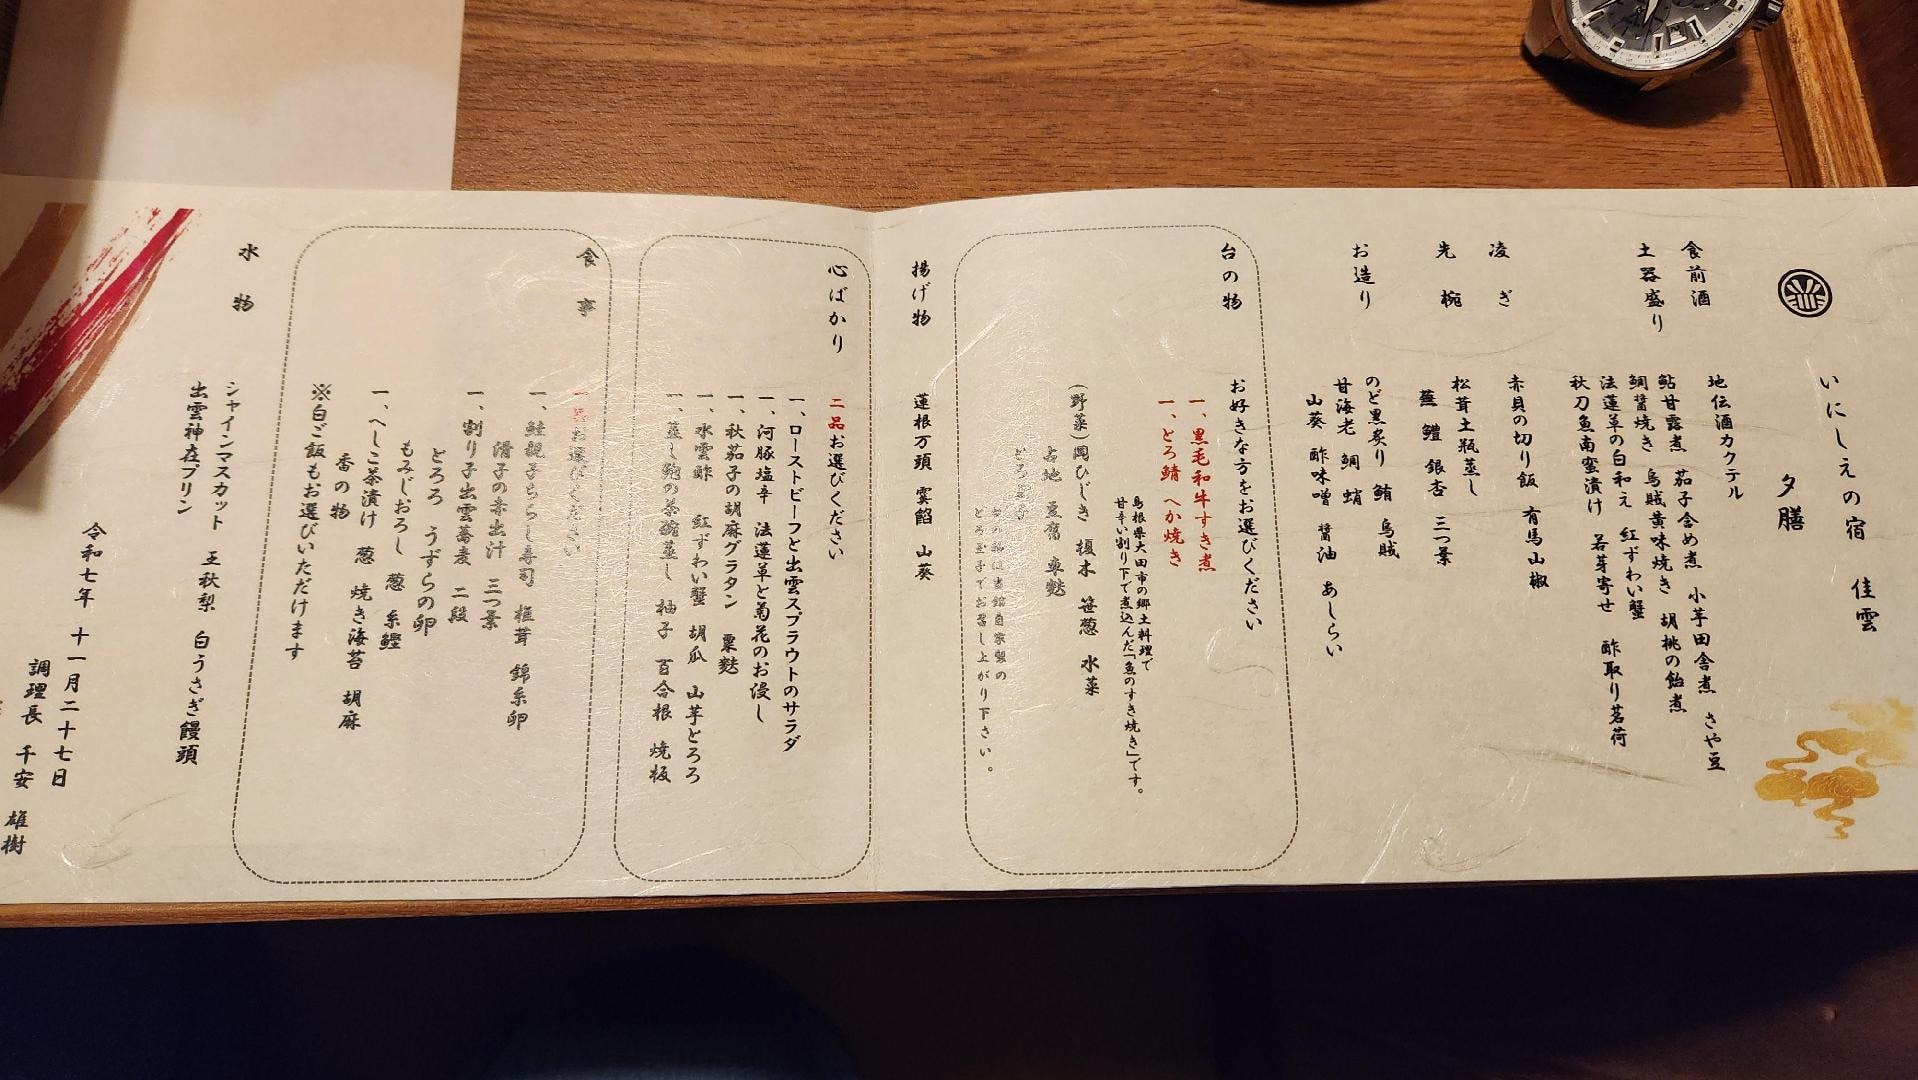 いにしえの宿 佳雲
夕膳
食前酒 地伝酒カクテル
土器盛り 鮎甘露煮 茄子含め煮 小芋田舎煮 さや豆
鯛醤焼き 烏賊黄味焼き 胡桃の飴煮
法蓮草の白和え 紅ずわい蟹
秋刀魚南蛮漬け 若芽寄せ 酢取り茗荷
凌ぎ 赤貝の切り飯 有馬山椒
先椀 松茸土瓶蒸し
鱧 銀杏 三つ葉
お造り のど黒炙り 鮪 烏賊
甘海老 鯛 蛸
山葵 酢味噌 醤油 あしらい
台の物 お好きな方をお選びください
一、黒毛和牛すき煮
一、とろ鯖 へか焼き
島根県大田市の郷土料理で
甘辛い割り下で煮込んだ「魚のすき焼き」です。
(野菜)岡ひじき 榎木 笹葱 水菜
占地 豆腐 車麩
とろ玉子
当館自家製の
とろ玉子でお召し上がり下さい。
揚げ物 蓮根万頭 雲餡 山葵
心ばかり 二品お選びください
一、ローストビーフと出雲スプラウトのサラダ
一、河豚塩辛 法蓮草と菊花のお浸し
一、秋茄子の胡麻グラタン 粟麩
一、水雲酢 紅ずわい蟹 胡瓜 山芋とろろ
一、蒸し鮑の茶碗蒸し 柚子 百合根 焼板
食事 一品お選びください
一、鮭親子ちらし寿司 椎茸 錦糸卵
滑子の赤出汁 三つ葉
一、割り子出雲蕎麦 二段
とろろ うずらの卵
もみじおろし 葱 糸鰹
一、へしこ茶漬け 葱 焼き海苔 胡麻
香の物
※白ご飯もお選びいただけます
水物 シャインマスカット 王秋梨 白うさぎ饅頭
出雲神在プリン
令和七年 十一月二十七日
調理長 千安 雄樹